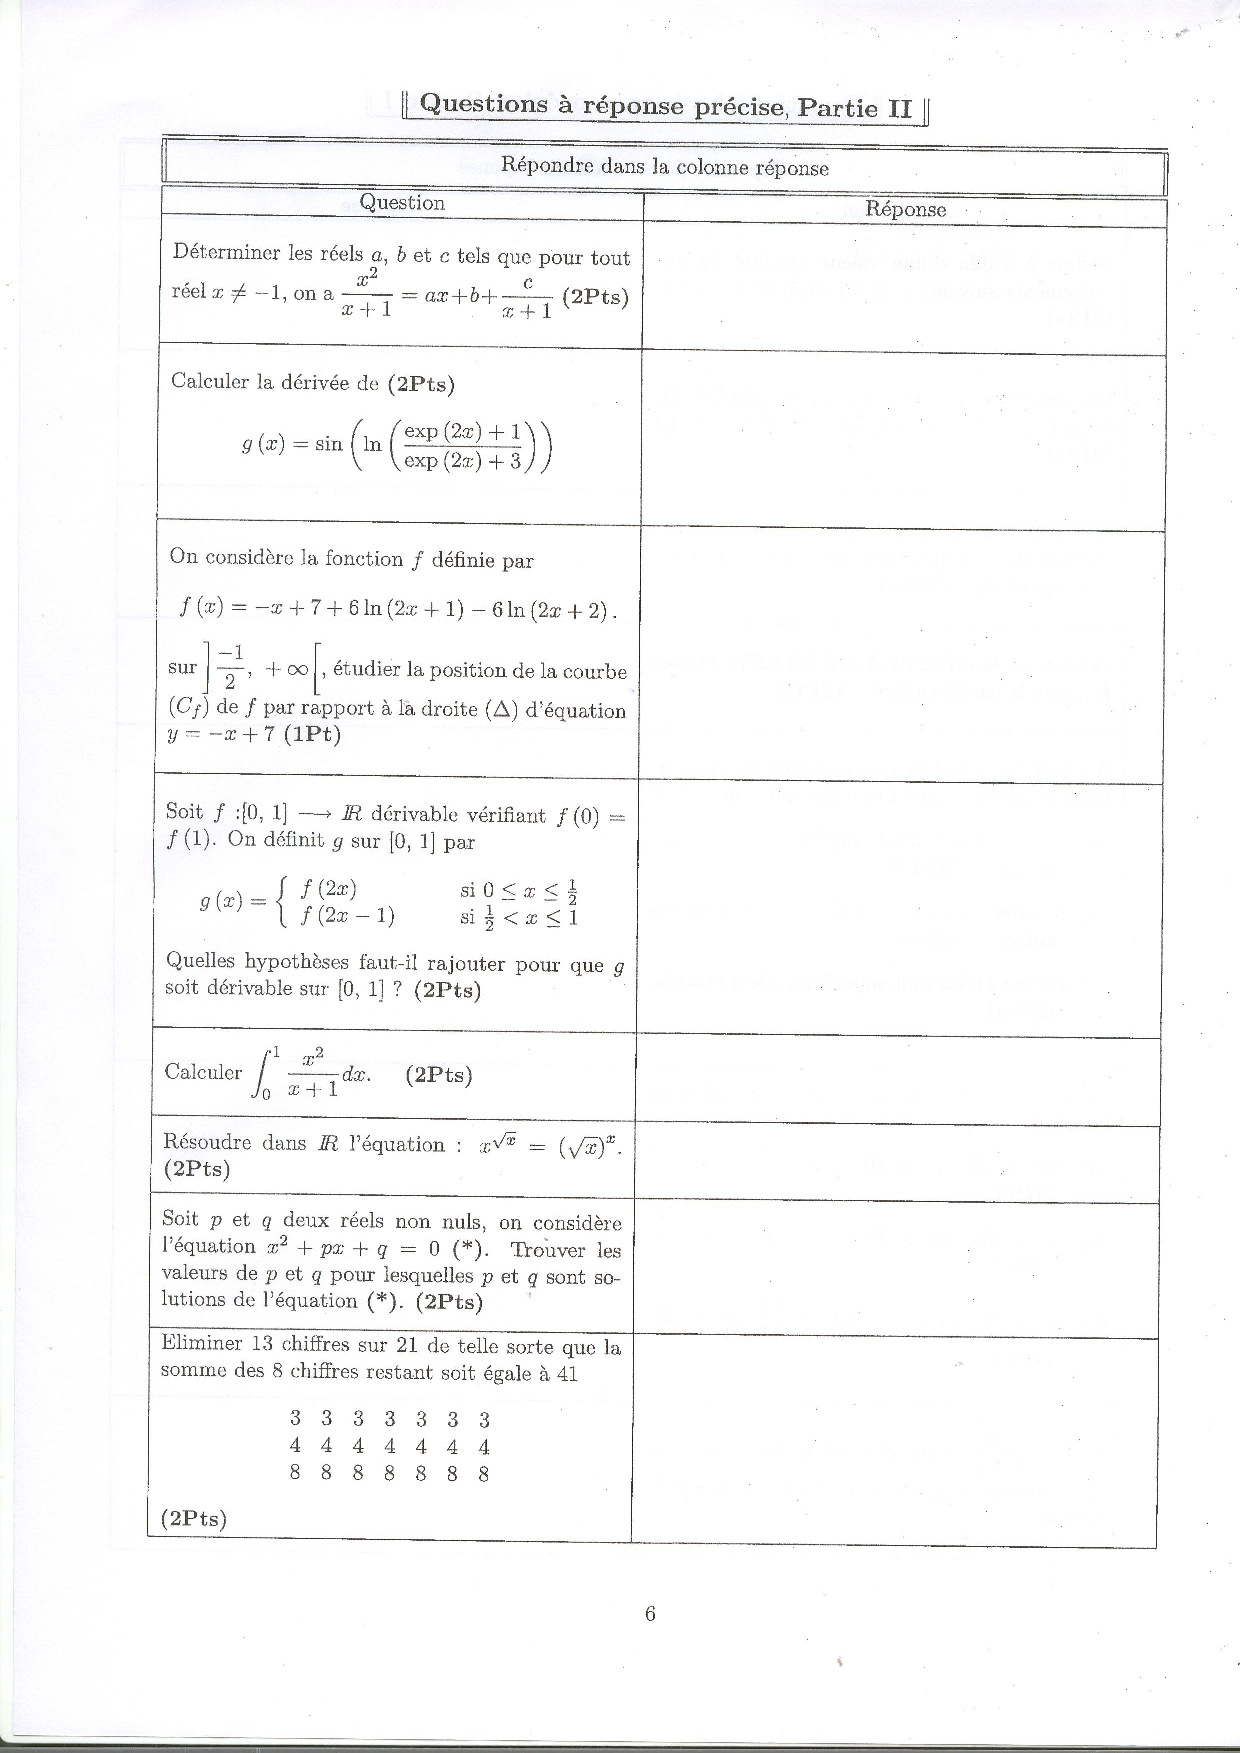 Questions à réponse précise, Partie II
Répondre dans la colonne réponse
Question
Réponse
Déterminer les réels a, b et c tels que pour tout
réel x ≠ −1, on a x²/(x + 1) = ax+b+ c/(x + 1) (2Pts)
Calculer la dérivée de (2Pts)
g (x) = sin (ln ((exp (2x) + 1)/(exp (2x) + 3)))
On considère la fonction f définie par
f (x) = −x + 7 + 6 ln (2x + 1) − 6 ln (2x + 2) .
sur ] −1/2, +∞ [, étudier la position de la courbe
(Cf) de f par rapport à la droite (Δ) d'équation
y = −x + 7 (1Pt)
Soit f :[0, 1] ⟶ IR dérivable vérifiant f (0) =
f (1). On définit g sur [0, 1] par
g (x) = { f (2x) si 0 ≤ x ≤ 1/2
f (2x − 1) si 1/2 < x ≤ 1
Quelles hypothèses faut-il rajouter pour que g
soit dérivable sur [0, 1] ? (2Pts)
Calculer ∫₀¹ x²/(x + 1) dx. (2Pts)
Résoudre dans IR l'équation : x^√x = (√x)^x.
(2Pts)
Soit p et q deux réels non nuls, on considère
l'équation x² + px + q = 0 (*). Trouver les
valeurs de p et q pour lesquelles p et q sont so-
lutions de l'équation (*). (2Pts)
Eliminer 13 chiffres sur 21 de telle sorte que la
somme des 8 chiffres restant soit égale à 41
3 3 3 3 3 3 3
4 4 4 4 4 4 4
8 8 8 8 8 8 8
(2Pts)
6